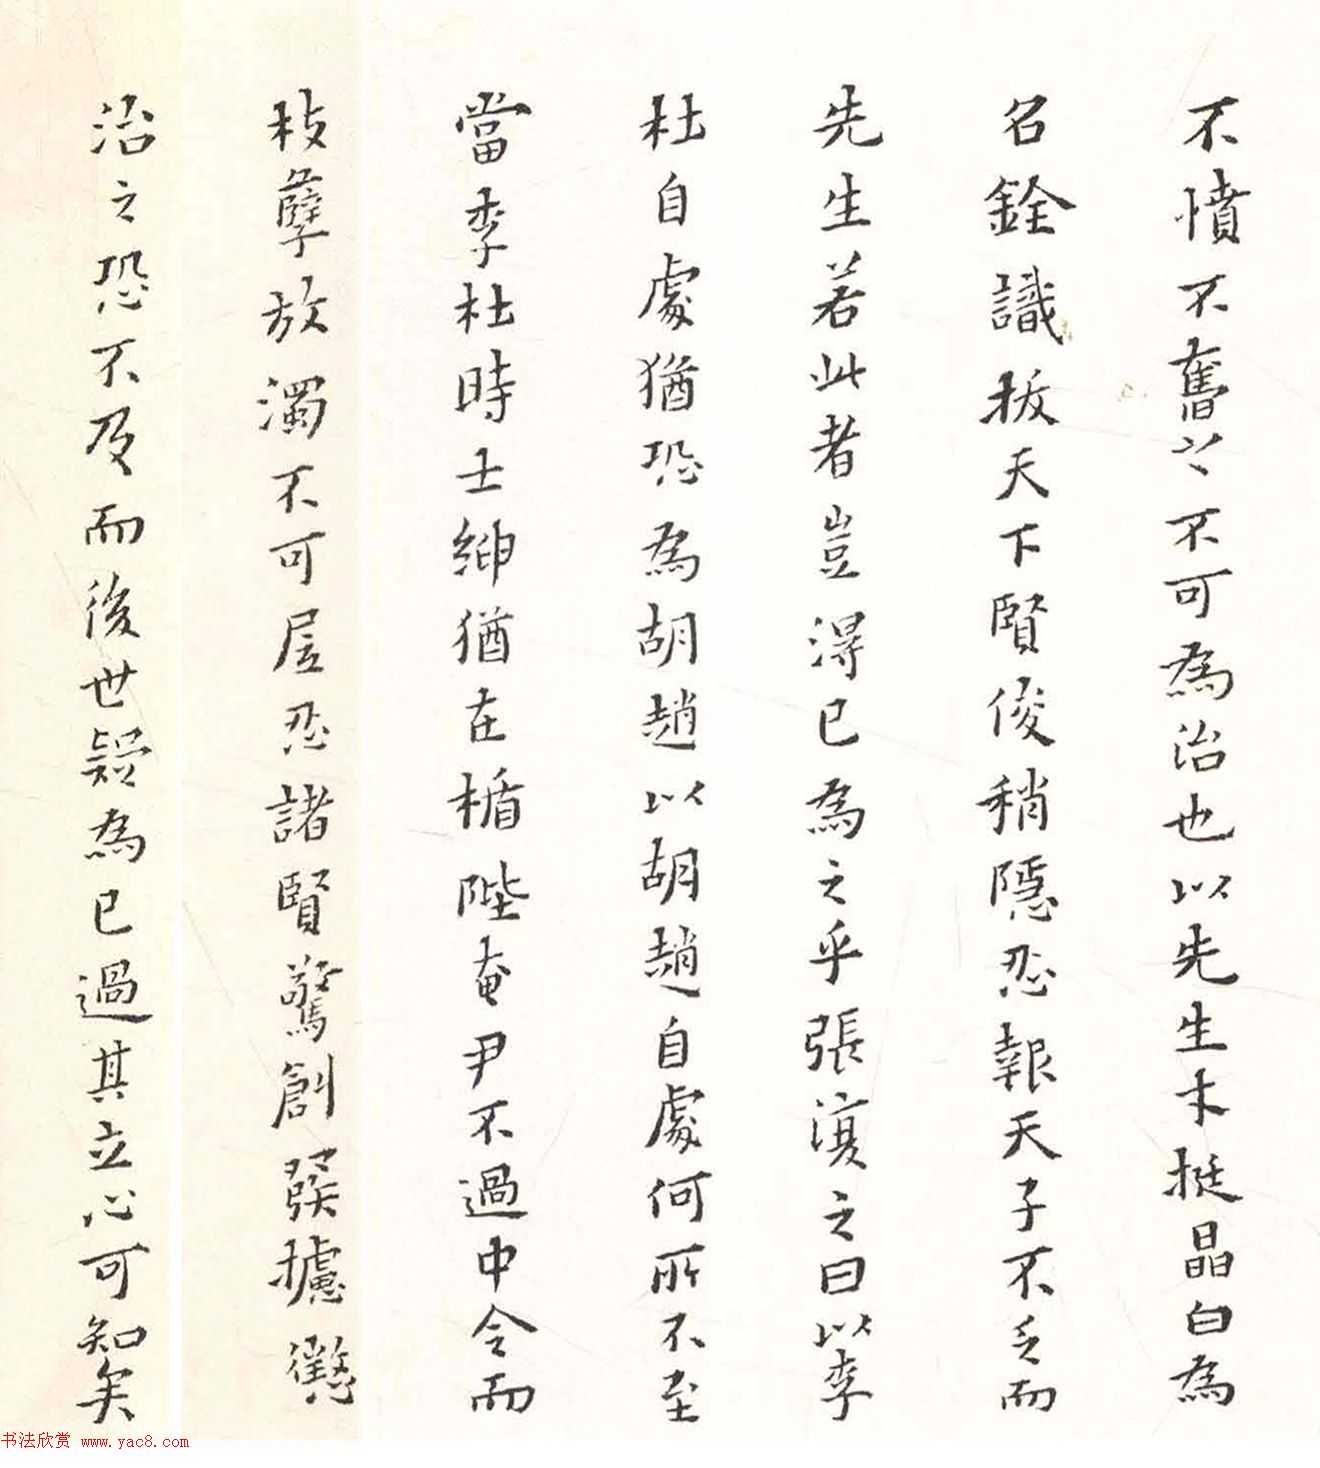 不憤不奮〻不可為治也以先生才挺晶白為
名銓識拔天下賢俊稍隱忍報天子不乏而
先生若此者豈得已為之乎張復之曰以李
杜自處猶恐為胡趙以胡趙自處何所不至
當李杜時士紳猶在楯陛奄尹不過中令而
枝孽放濁不可忍諸賢驚創發攄懲
治之恐不及而後世疑為已過其立心可知矣
书法欣赏 www.yac8.com